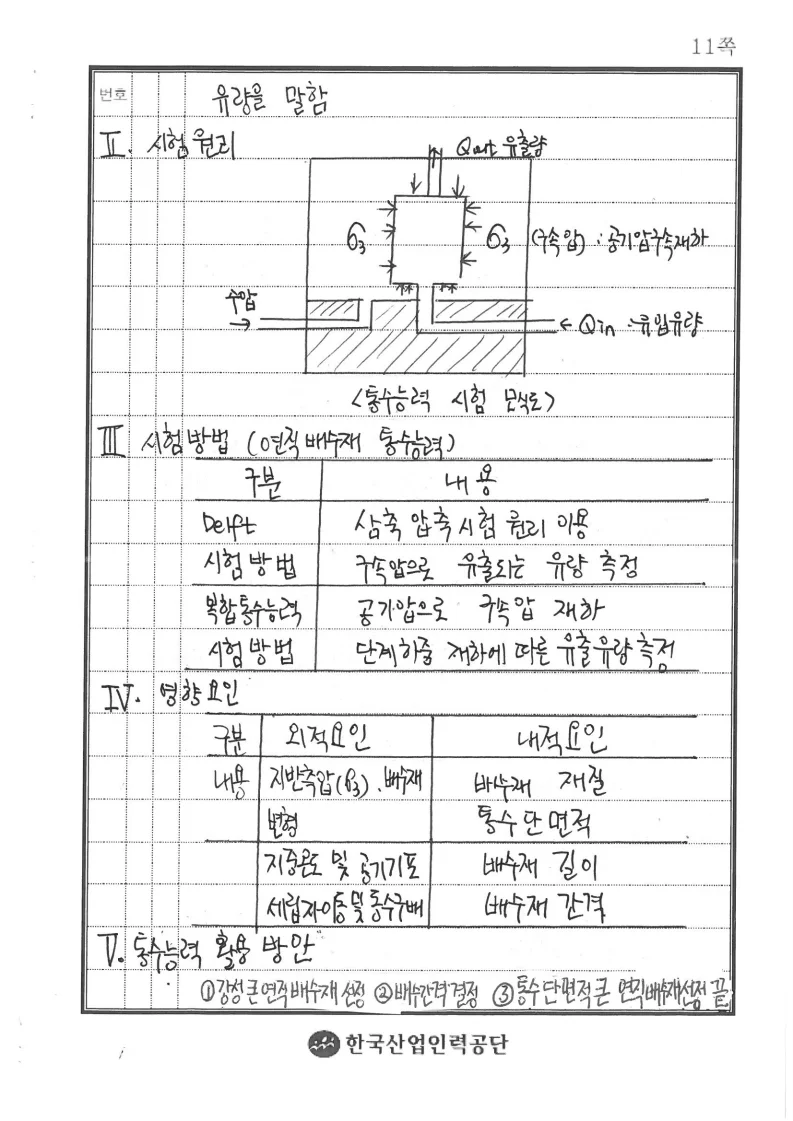 11쪽
번호
유량을 말함
Ⅱ. 시험원리
Qout 유출량
σ3 σ3 (구속압) : 공기압구속재하
수압
Qin : 유입유량
<통수능력 시험 모식도>
Ⅲ 시험방법 (연직배수재 통수능력)
구분 내용
Delft 삼축압축시험 원리 이용
시험방법 구속압으로 유출되는 유량 측정
복합통수능력 공기압으로 구속압 재하
시험방법 단계하중 재하에 따른 유출유량측정
Ⅳ. 영향요인
구분 외적요인 내적요인
내용 지반측압(σ3), 배수재 배수재 재질
변형 통수단면적
지중온도 및 공기기포 배수재 길이
세립자이동및통수구배 배수재 간격
Ⅴ. 통수능력 활용 방안
①강성큰연직배수재선정 ②배수간격결정 ③통수단면적큰 연직배수재선정 끝
한국산업인력공단